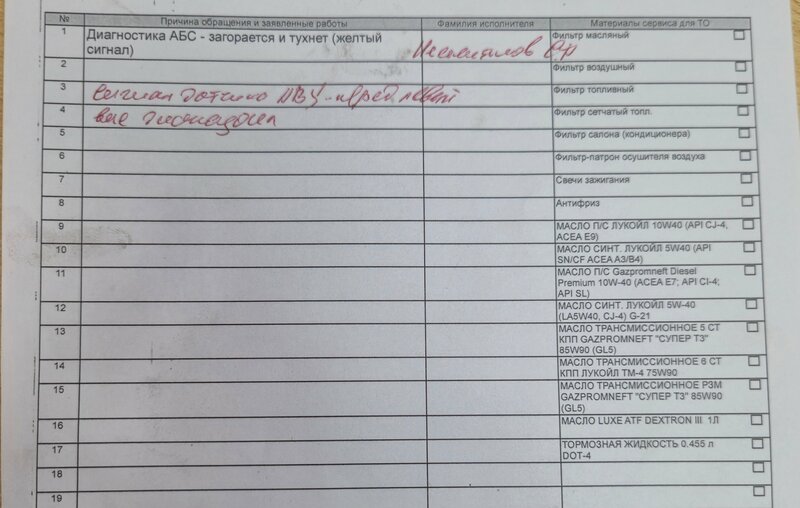 № Причина обращения и заявленные работы Фамилия исполнителя Материалы сервиса для ТО
1 Диагностика АБС - загорается и тухнет (желтый Фильтр масляный
сигнал)
2 Фильтр воздушный
3 сигнал датчика Фильтр топливный
4 вне диапазона Фильтр сетчатый топл.
5 Фильтр салона (кондиционера)
6 Фильтр-патрон осушителя воздуха
7 Свечи зажигания
8 Антифриз
9 МАСЛО П/С ЛУКОЙЛ 10W40 (API CJ-4,
ACEA E9)
10 МАСЛО СИНТ. ЛУКОЙЛ 5W40 (API
SN/CF ACEA A3/B4)
11 МАСЛО П/С Gazpromneft Diesel
Premium 10W-40 (ACEA E7; API CI-4;
API SL)
12 МАСЛО СИНТ. ЛУКОЙЛ 5W-40
(LA5W40, CJ-4) G-21
13 МАСЛО ТРАНСМИССИОННОЕ 5 СТ
КПП GAZPROMNEFT "СУПЕР Т3"
85W90 (GL5)
14 МАСЛО ТРАНСМИССИОННОЕ 6 СТ
КПП ЛУКОЙЛ ТМ-4 75W90
15 МАСЛО ТРАНСМИССИОННОЕ РЗМ
GAZPROMNEFT "СУПЕР Т3" 85W90
(GL5)
16 МАСЛО LUXE ATF DEXTRON III 1Л
17 ТОРМОЗНАЯ ЖИДКОСТЬ 0.455 л
DOT-4
18
19